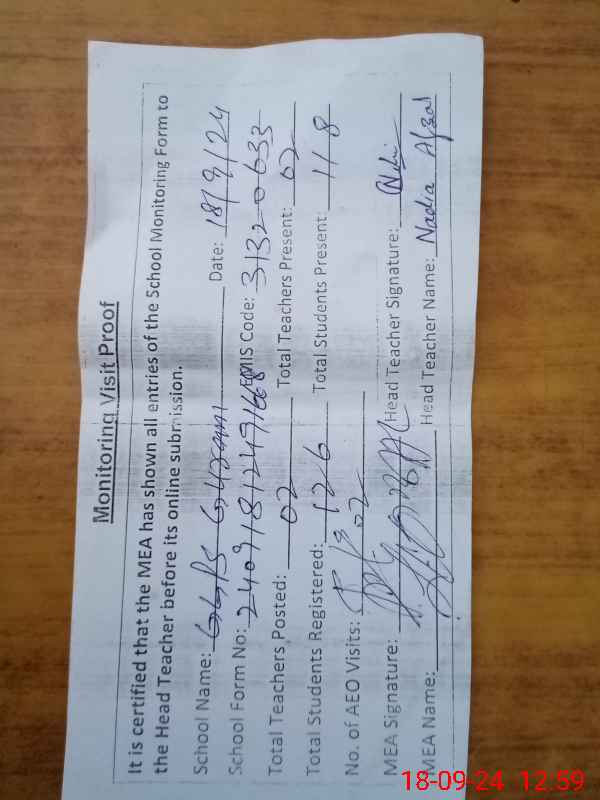 Monitoring Visit Proof
It is certified that the MEA has shown all entries of the School Monitoring Form to
the Head Teacher before its online submission.
School Name: GGPS Date: 18/9/24
School Form No: EMIS Code: 31320633
Total Teachers Posted: 02 Total Teachers Present: 02
Total Students Registered: 126 Total Students Present: 118
No. of AEO Visits: 02
MEA Signature: Head Teacher Signature:
MEA Name: Head Teacher Name: Nadia Afzal
18-09-24 12:59